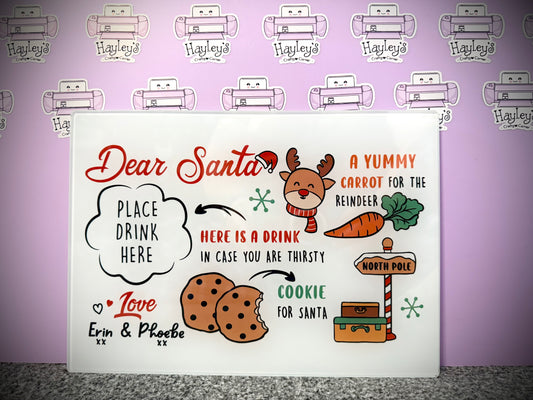 Hayley's
Crafty Corner
Hayley's
Crafty Corner
Hayley's
Crafty Corner
Dear Santa
A YUMMY
CARROT FOR THE
REINDEER
PLACE
DRINK
HERE
HERE IS A DRINK
IN CASE YOU ARE THIRSTY
NORTH POLE
COOKIE
FOR SANTA
Love
Erin & Phoebe
xx xx